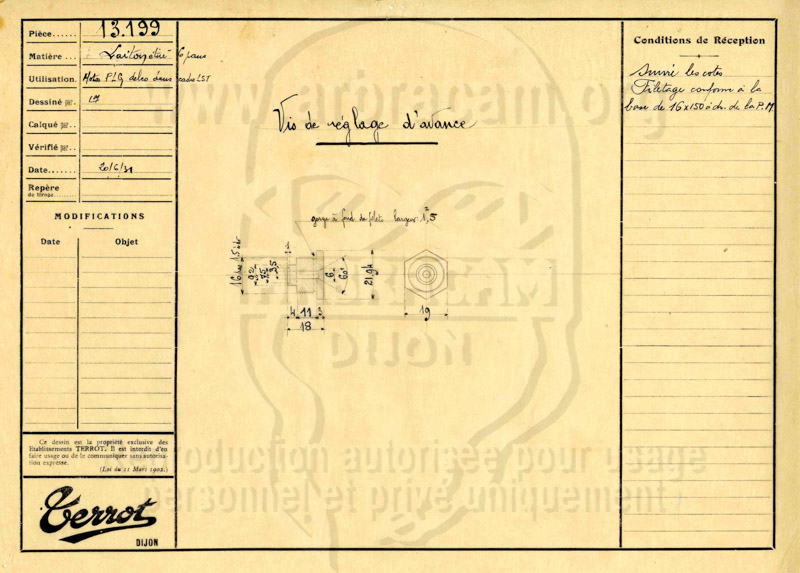 Pièce..... 13.199
Matière ... Laiton étiré 6 pans
Utilisation. Motos PLG delco dans cadre LST
Dessiné par..
Calqué par...
Vérifié par...
Date....... 20/6/31
Repère
de tirage.......
MODIFICATIONS
Date Objet
Ce dessin est la propriété exclusive des
Etablissements TERROT. Il est interdit d'en
faire usage ou de le communiquer sans autorisa-
tion expresse.
(Loi du 11 Mars 1902.)
Terrot
DIJON
Vis de réglage d'avance
gorge à fond de filets largeur 1,5
1
16 1,5
9
7,5
3,5
6
60°
21,94
4 11 3
18
19
Conditions de Réception
Suivre les cotes
Filetage conforme à la
base de 16x150 de la P.M
www.amicacam.org
DIJON
Reproduction autorisée pour usage
personnel et privé uniquement